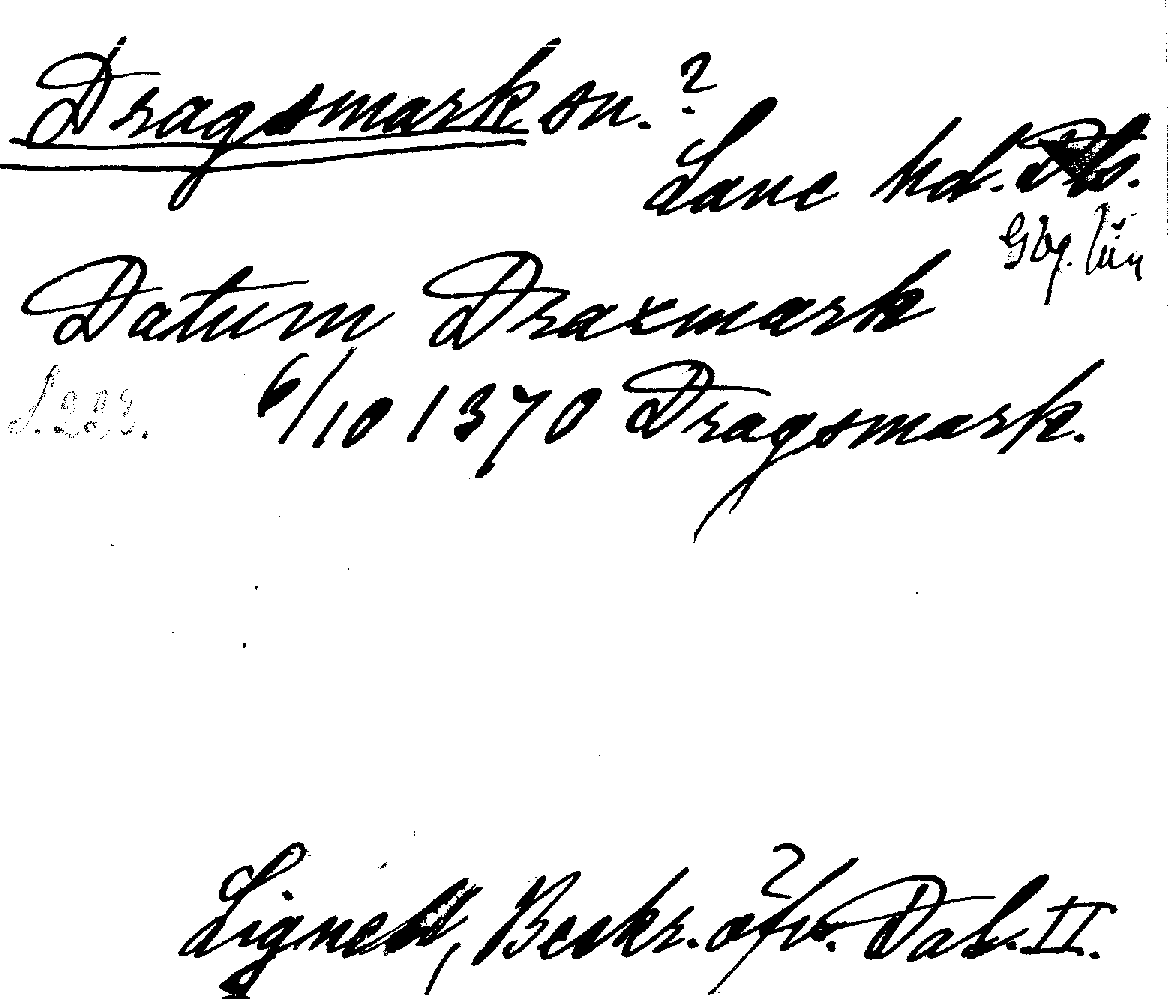 Dragsmark sn. ?
Lane hd.
Gbg. län
Datum Draxmark
S. 223. 6/10 1370 Dragsmark.
Lignell, Beskr. öfv. Dal. II.